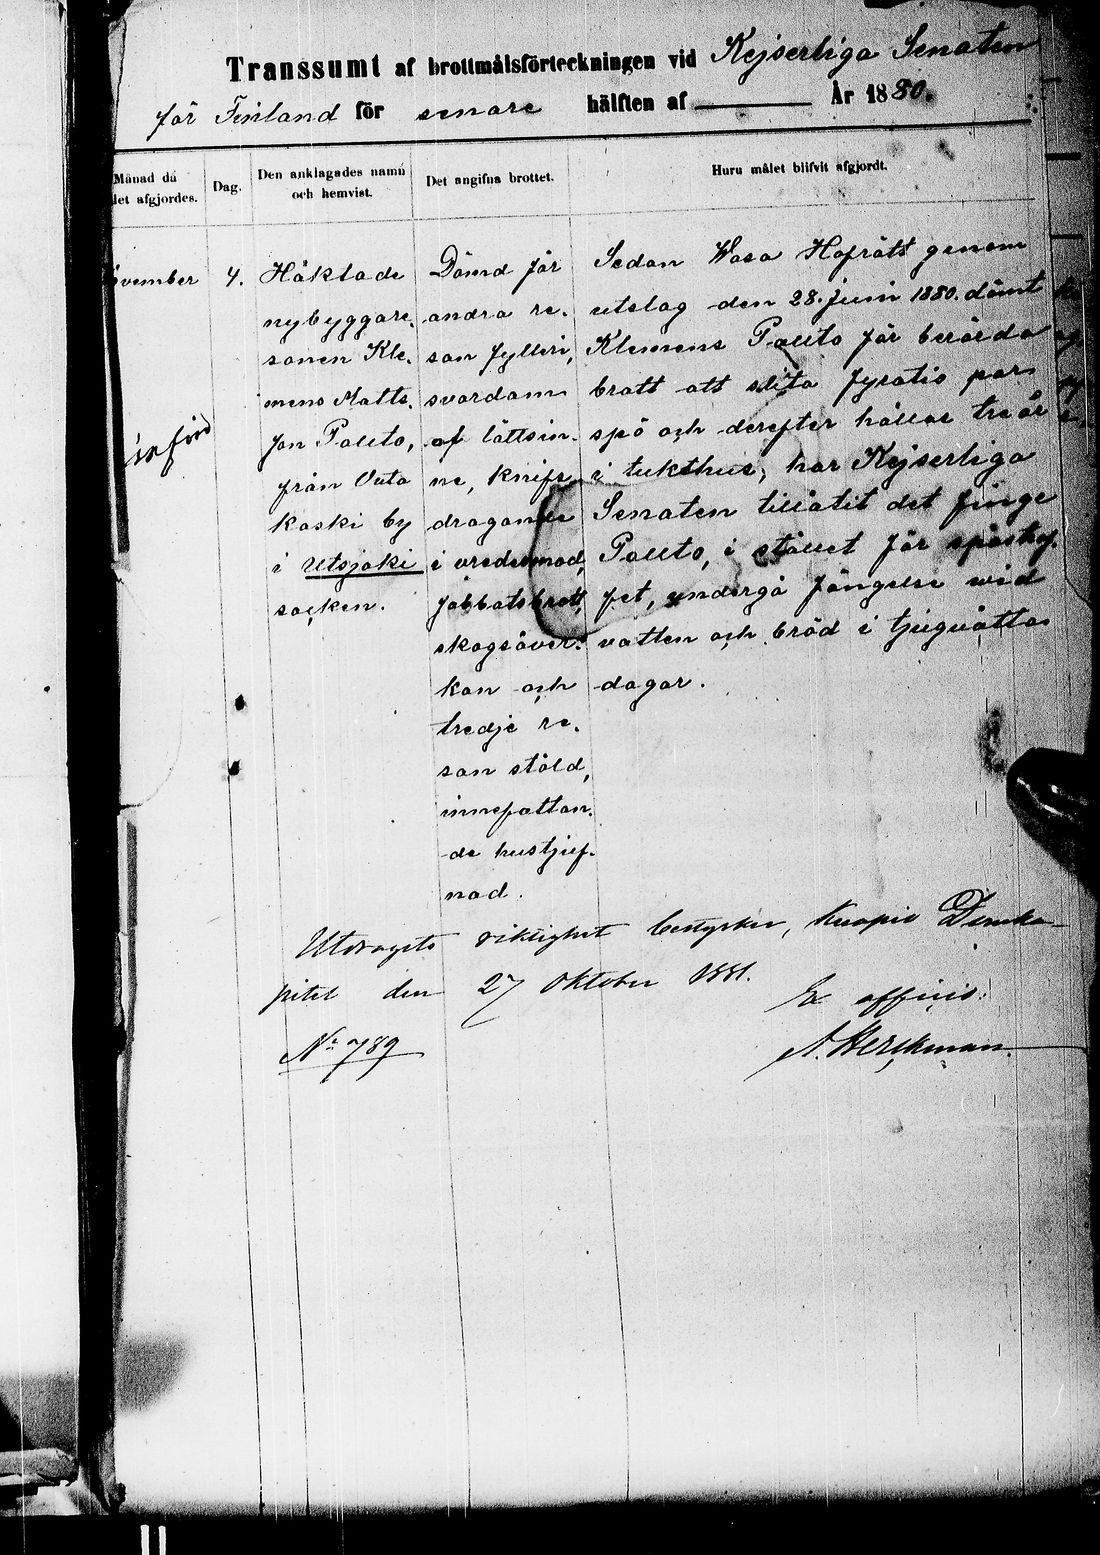 Transsumt af brottmålsförteckningen vid Kejserliga Senaten
för Finland för senare hälften af ——— År 1880.
Månad då
det afgjordes.
Dag.
Den anklagades namn
och hemvist.
Det angifna brottet.
Huru målet blifvit afgjordt.
November
4.
Häktade
nybyggare-
sonen Kle-
mens Matts-
son Palito,
från Outa
koski by
i Utsjoki
socken.
Dömd för
andra re-
san fylleri,
svordam
af lättsin-
ne, knifs-
dragande
i vredesmod,
sabbatsbrott,
skogsåver-
kan och
tredje re-
san stöld,
innefattan-
de hustjuf-
nad.
Sedan Wasa Hofrätt genom
utslag den 28. juni 1880. dömt
Klemens Palito för berörda
brott att slita fyratio par
spö och derefter hållas tre år
i tukthus, har Kejserliga
Senaten tillåtit det finge
Palito, i stället för spöstraf-
fet, undergå fängelse wid
vatten och bröd i tjuguåtta
dagar.
införd
Utdragets riktighet bestyrker, Kuopio Domka-
pitel den 27 Oktober 1881.
Ex officio:
№ 789